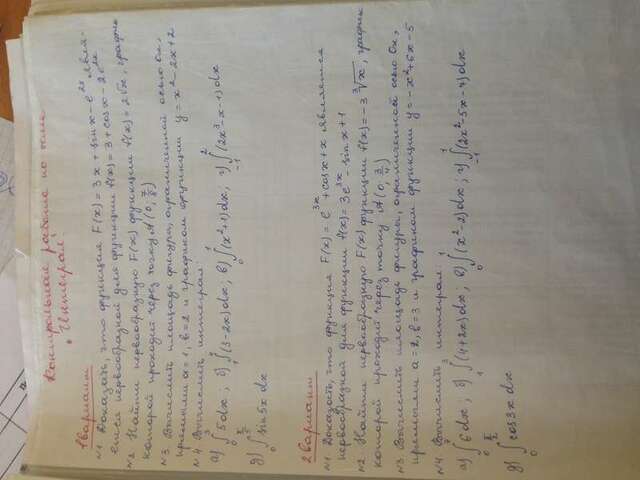 Контрольная работа по теме
"Интеграл"
1 вариант
№1. Доказать, что функция F(x) = 3x + sin x - e^{2x} явля-
ется первообразной для функции f(x) = 3 + cos x - 2e^{2x}
№2. Найти первообразную F(x) функции f(x) = 2√x, график
которой проходит через точку A(0; 7/8)
№3. Вычислить площадь фигуры, ограниченной осью Ox,
прямыми a = 1, b = 2 и графиком функции y = x² - 2x + 2
№4. Вычислить интеграл:
а) ∫ 5dx; б) ∫ (3 - 2x)dx; в) ∫ (x² + 1)dx; г) ∫_{-1}^{2} (2x³ - x - 1)dx
д) ∫ sin 5x dx
2 вариант
№1. Доказать, что функция F(x) = e^{3x} + cos x + x является
первообразной для функции f(x) = 3e^{3x} - sin x + 1
№2. Найти первообразную F(x) функции f(x) = -3 ∛x, график
которой проходит через точку A(0; 3/4)
№3. Вычислить площадь фигуры, ограниченной осью Ox,
прямыми a = 2, b = 3 и графиком функции y = -x² + 6x - 5
№4. Вычислить интеграл:
а) ∫ 6dx; б) ∫_{1}^{3} (4 + 2x)dx; в) ∫_{0}^{1} (x² - 2)dx; г) ∫_{-1}^{1} (2x² - 5x - 7)dx
д) ∫ cos 3x dx